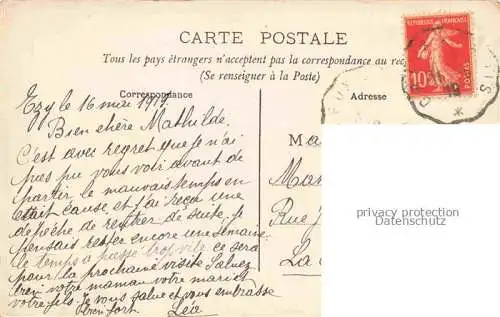 CARTE POSTALE
Tous les pays étrangers n'acceptent pas la correspondance au rec
(Se renseigner à la Poste)
Correspondance
Adresse
REPUBLIQUE FRANÇAISE
10c
POSTES
Ezy le 16 mai 191
Bien chère Mathilde.
C'est avec regret que je n'ai
pas pu vous voir avant de
partir le mauvais temps en
était cause et j'ai reçu une
depêche de rentrer de suite. Je
pensais rester encore une semaine
le temps a passé trop vite ce sera
pour la prochaine visite Saluez
bien votre maman votre mari et
votre fils. Je vous salue et vous embrasse
bien fort Léa
Ma
Man
Rue J
La
privacy protection
Datenschutz